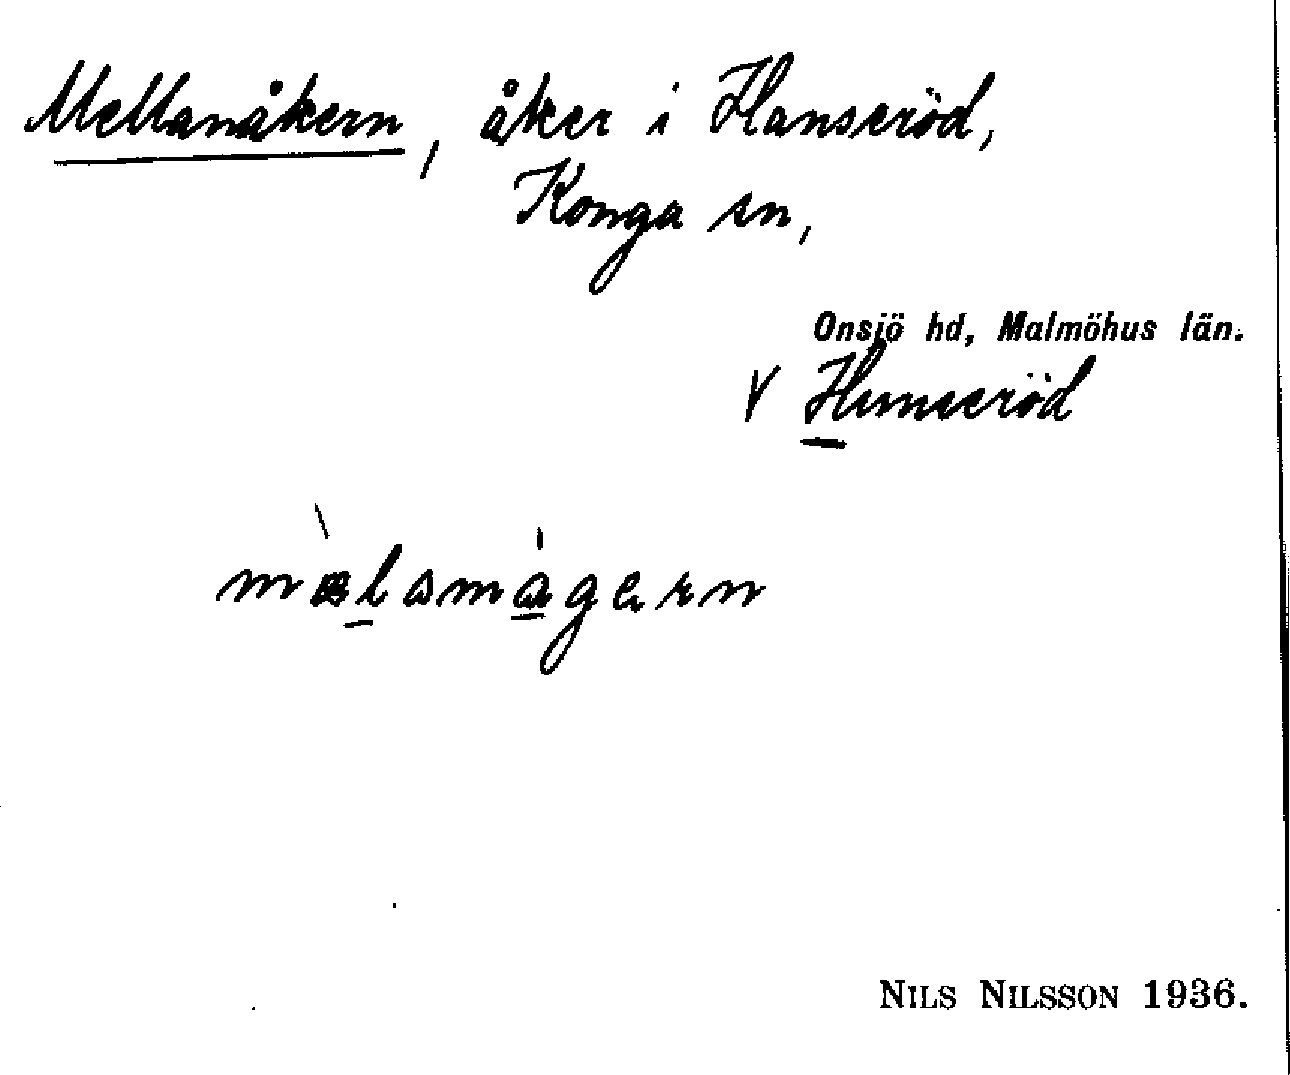 Mellanåkern, åker i Hanseröd,
Konga sn,
Onsjö hd, Malmöhus län.
V Hunseröd
NILS NILSSON 1936.